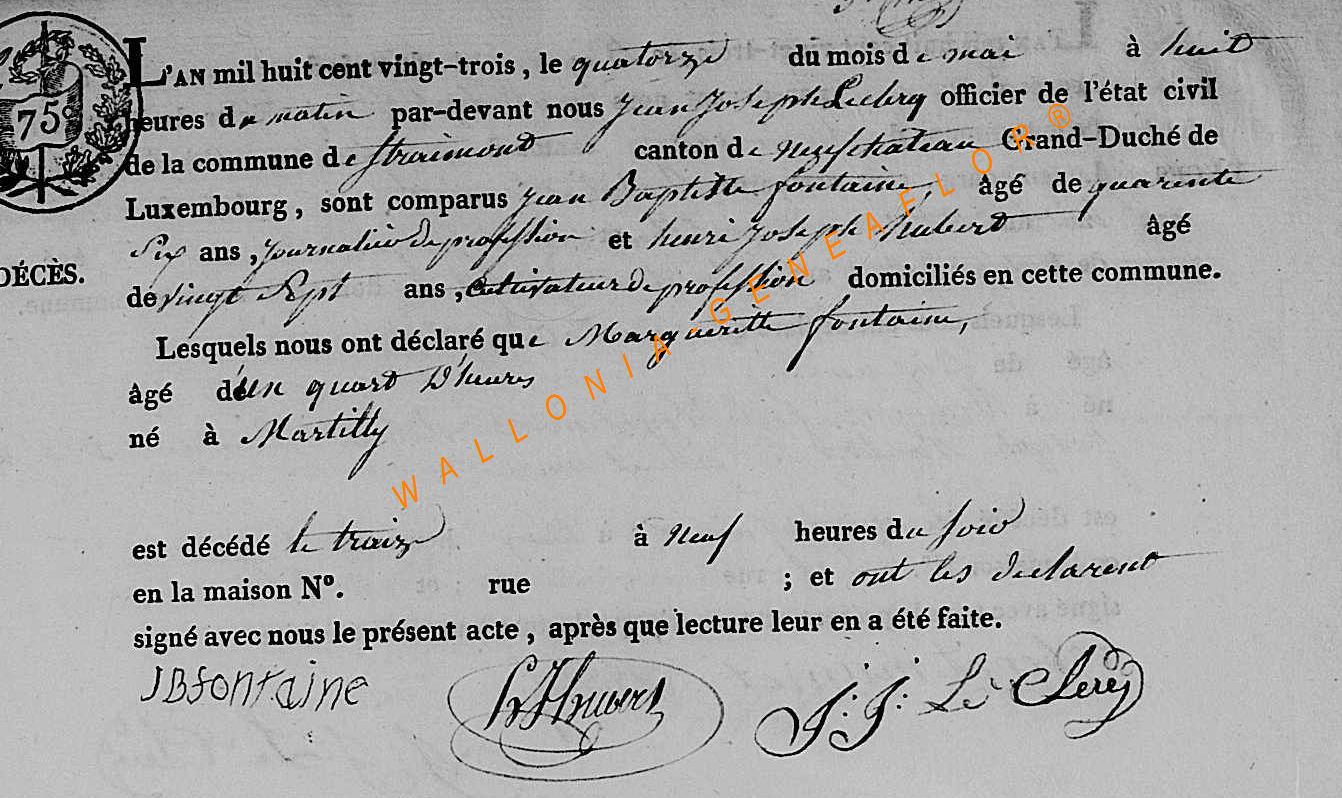 L'AN mil huit cent vingt-trois, le quatorze du mois de mai à huit
75
heures du matin par-devant nous Jean Joseph Leclerq officier de l'état civil
de la commune de Straimont canton de Neufchateau Grand-Duché de
Luxembourg, sont comparus Jean Baptiste fontaine, âgé de quarente
Six ans, journalier de profession et henri Joseph hubert âgé
DÉCÈS.
de vingt Sept ans, cultivateur de profession domiciliés en cette commune.
Lesquels nous ont déclaré que Margueritte fontaine,
âgé d'un quart D'heures
né à Martilly
est décédé le traize à neuf heures du soir
en la maison N°. rue ; et ont les declarent
signé avec nous le présent acte, après que lecture leur en a été faite.
JBfontaine J: J: Le Clerq
WALLONIA-GENEAFLOR®